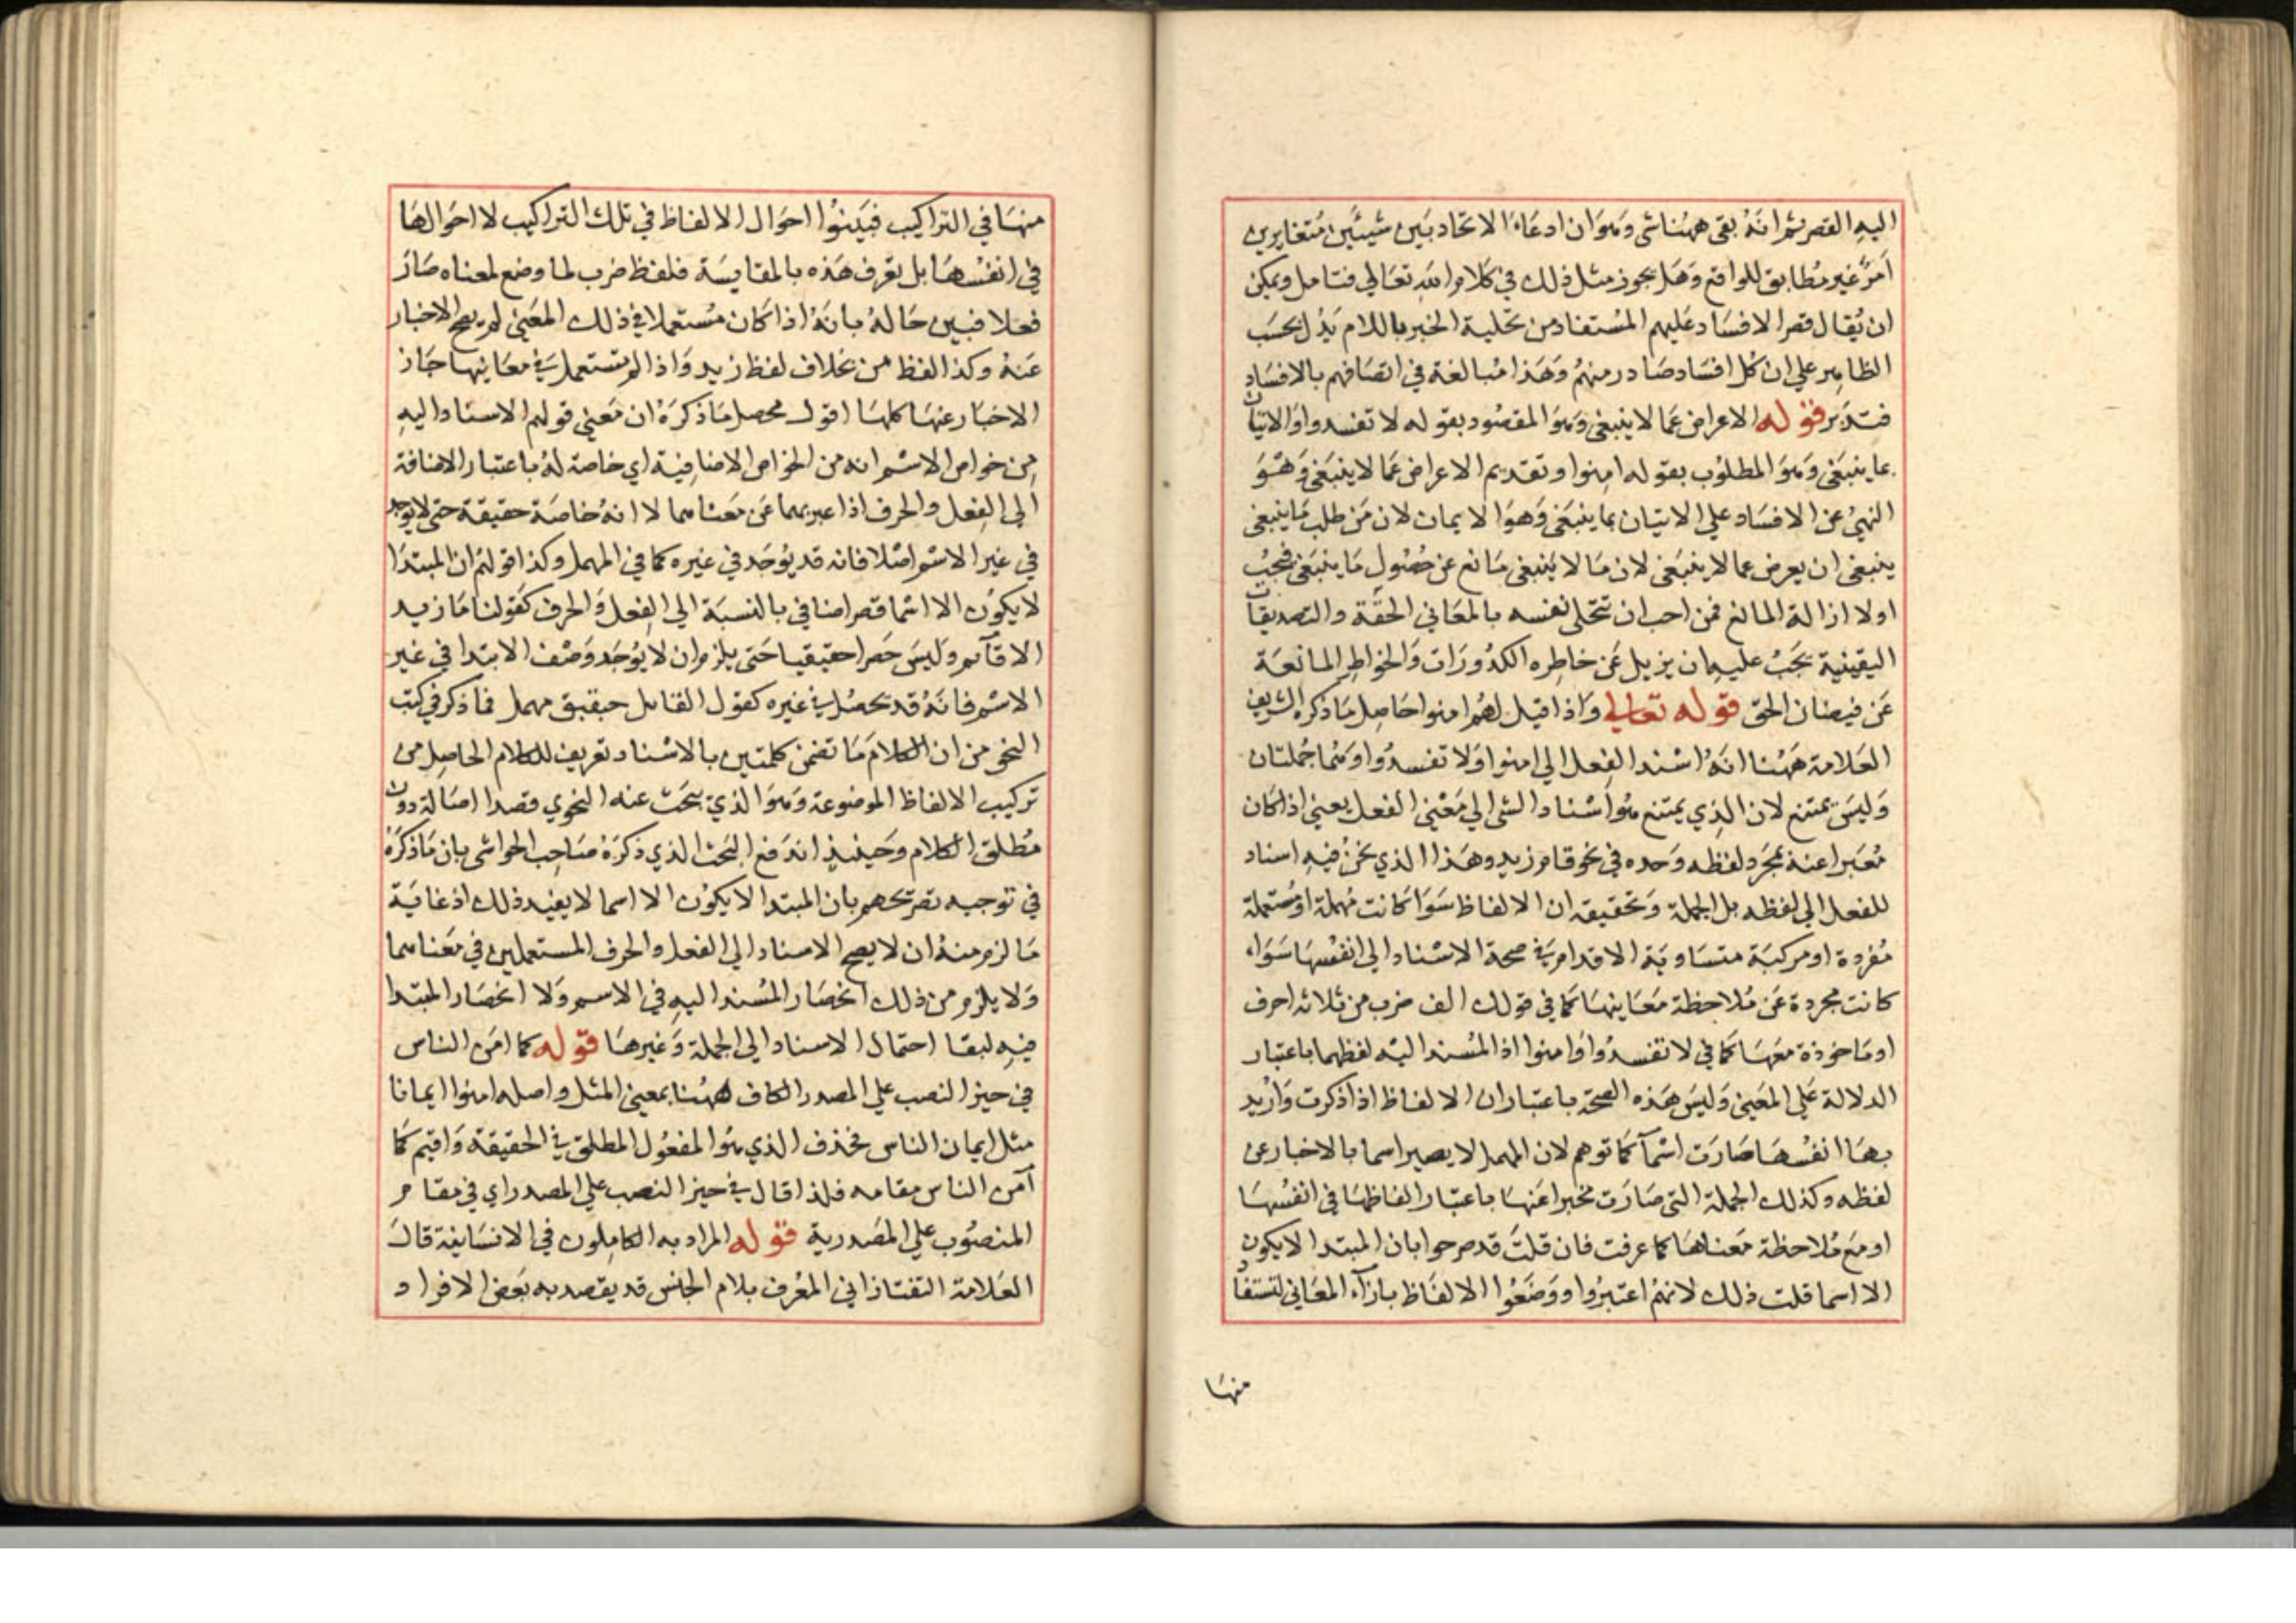 اليه القصر ثم انه بقى ههنا شى وهو ان ادعاء الاتحاد بين شيئين متغايرين
امر غير مطابق للواقع وهل يجوز مثل ذلك في كلام الله تعالي فتامل ويمكن
ان يقال قصر الافساد عليهم المستفاد من تحلية الخبر باللام يدل بحسب
الظاهر علي ان كل افساد صادر منهم وهذا مبالغة في اتصافهم بالافساد
فتدبر قوله الاعراض عما لا ينبغى وهو المقصود بقوله لا تفسدوا والاتيان
بما ينبغى وهو المطلوب بقوله امنوا وتقديم الاعراض عما لا ينبغى وهو
النهي عن الافساد علي الاتيان بما ينبغى وهو الايمان لان من طلب ما ينبغى
ينبغى ان يعرض عما لا ينبغى لان ما لا ينبغى مانع عن حصول ما ينبغى فيجب
اولا ازالة المانع فمن احب ان تتحلى نفسه بالمعاني الحقة والتصديقات
اليقينية يجب عليه ان يزيل عن خاطره الكدورات والخواطر المانعة
عن فيضان الحق قوله تعالي واذا قيل لهم امنوا حاصل ما ذكره الشريف
العلامة ههنا انه اسند الفعل الي امنوا ولا تفسدوا وهما جملتان
وليس يمتنع لان الذي يمتنع هو اسناد الشى الي معنى الفعل يعني اذا كان
معبرا عنه بمجرد لفظه وحده في نحو قام زيد وهذا الذي نحن فيه اسناد
للفعل الي لفظه بل الجملة وتحقيقه ان الالفاظ سوا كانت مهملة او مستعملة
مفردة او مركبة متساوية الاقدام في صحة الاسناد الي انفسها سواء
كانت مجردة عن ملاحظة معاينها كما في قولك الف ضرب من ثلاثه احرف
او ماخوذة معها كما في لا تفسدوا وامنوا اذ المسند اليه لفظهما باعتبار
الدلالة علي المعنى وليس هذه الصحة باعتبار ان الالفاظ اذا ذكرت واريد
بها انفسها صارت اسما كما توهم لان المهمل لا يصير اسما بالاخبار عن
لفظه وكذلك الجملة التى صارت مخبرا عنها باعتبار الفاظها في انفسها
او مع ملاحظة معناها كما عرفت فان قلت قد صرحوا بان المبتدا لا يكون
الا اسما قلت ذلك لانهم اعتبروا ووضعوا الالفاظ بازآء المعاني لتستفا
منها
منها في التراكيب فبينوا احوال الالفاظ في تلك التراكيب لا احوالها
في انفسها بل تعرف هذه بالمقايسة فلفظ ضرب لما وضع لمعناه صار
فعلا فبين حاله بانه اذا كان مستعملا في ذلك المعنى لم يصح الاخبار
عنه وكذا لفظ من بخلاف لفظ زيد واذا لم تستعمل في معاينها جاز
الاخبار عنها كلها اقول محصل ما ذكره ان معنى قولهم الاسناد اليه
من خواص الاسم انه من الخواص الاضافية اي خاصة له باعتبار الاضافة
الي الفعل والحرف اذا عبر بهما عن معناهما لا انه خاصة حقيقة حتى لا يوجد
في غير الاسم اصلا فانه قد يوجد في غيره كما في المهمل وكذا قولهم ان المبتدا
لا يكون الا اسما قصر اضافي بالنسبة الي الفعل والحرف كقولنا ما زيد
الا قآئم وليس حصرا حقيقيا حتى يلزم ان لا يوجد وصف الابتدا في غير
الاسم فانه قد يحصل في غيره كقول القائل جيقبق مهمل فما ذكر في كتب
النحو من ان الكلام ما تضمن كلمتين بالاسناد تعريف للكلام الحاصل من
تركيب الالفاظ الموضوعة وهو الذي يبحث عنه النحوي قصدا اصالة دون
مطلق الكلام وحينيذ اندفع البحث الذي ذكره صاحب الحواشى بان ما ذكره
في توجيه تصريحهم بان المبتدا لا يكون الا اسما لا يفيد ذلك اذ غاية
ما لزم منه ان لا يصح الاسناد الي الفعل والحرف المستعملين في معناهما
ولا يلزم من ذلك انحصار المسند اليه في الاسم ولا انحصار المبتدا
فيه لبقا احتمال الاسناد الي الجملة وغيرها قوله كما امن الناس
في حيز النصب علي المصدر الكاف ههنا بمعنى المثل واصله امنوا ايمانا
مثل ايمان الناس فحذف الذي هو المفعول المطلق في الحقيقة واقيم كما
آمن الناس مقامه فلذا قال في حيز النصب علي المصدر اي في مقام
المنصوب علي المصدرية قوله المراد به الكاملون في الانسانية قال
العلامة التفتازاني المعرف بلام الجنس قد يقصد به بعض الافراد